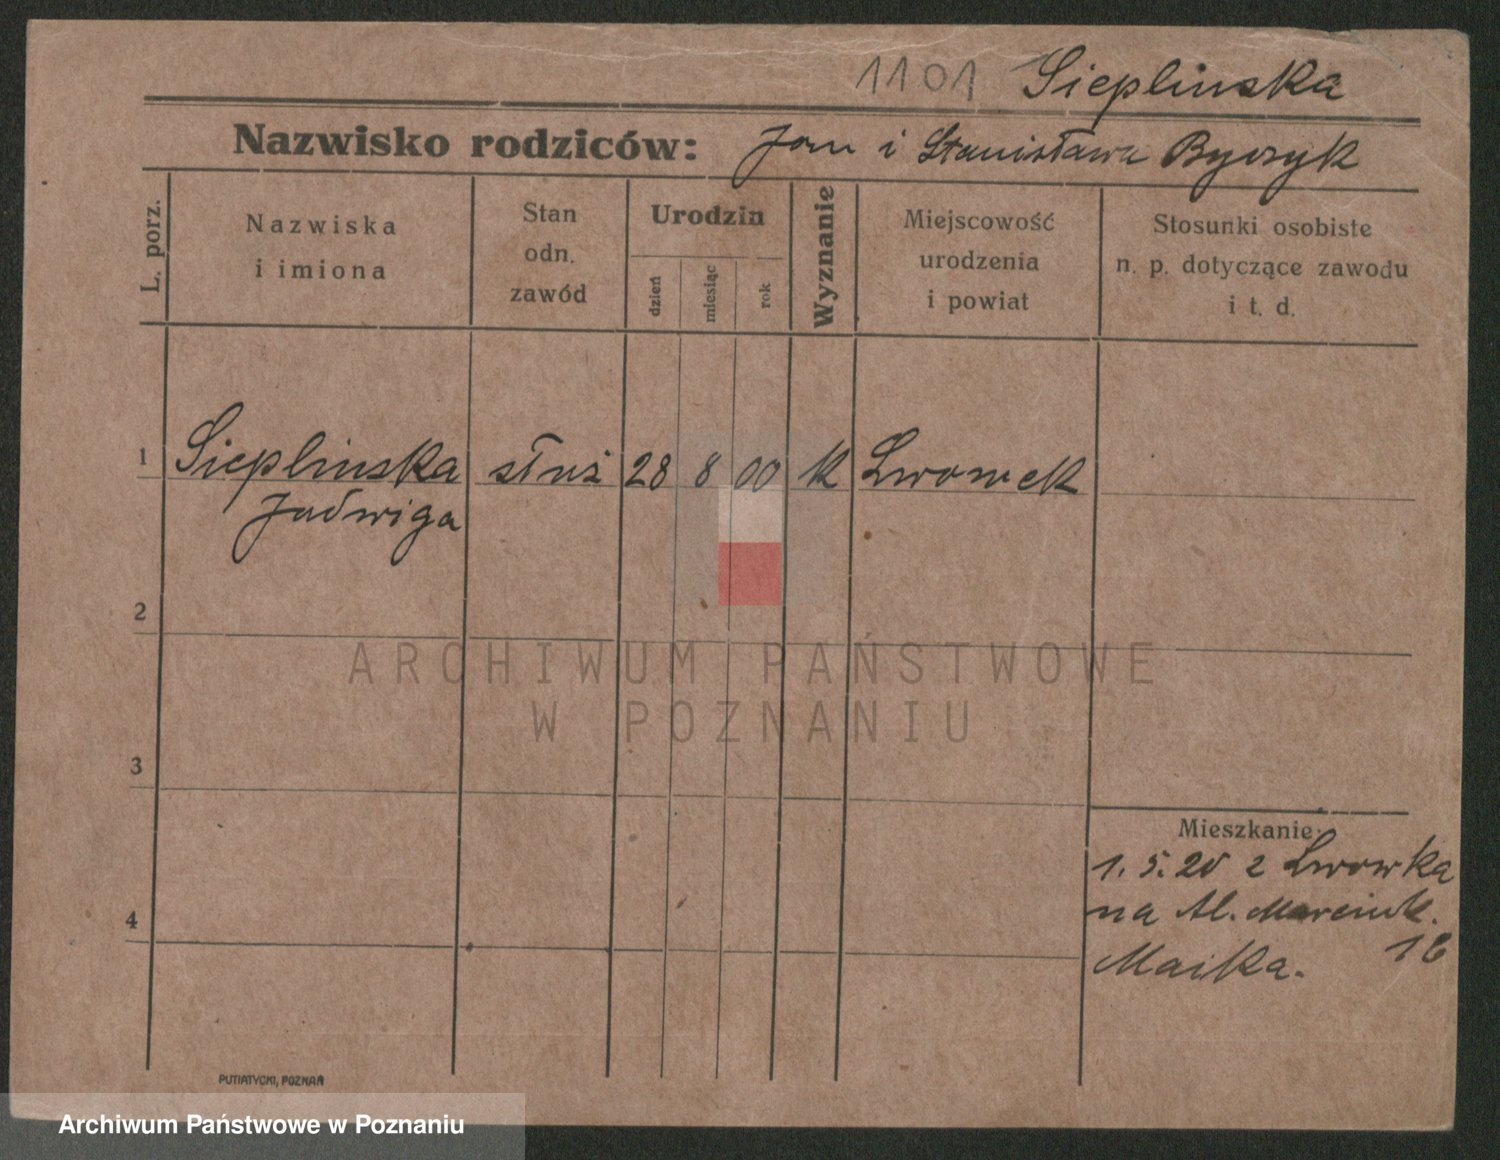 1101 Sieplinska
Nazwisko rodziców: Jan i Stanisława Byczyk
L. porz.
Nazwiska
i imiona
Stan
odn.
zawód
Urodzin
dzień
miesiąc
rok
Wyznanie
Miejscowość
urodzenia
i powiat
Stosunki osobiste
n. p. dotyczące zawodu
i t. d.
1 Sieplinska służ 28 8 00 k Lwowek
Jadwiga
2
3
4
ARCHIWUM PAŃSTWOWE
W POZNANIU
Mieszkanie:
1. 5. 20 z Lwowka
na Al. Marcink.
16
Maika.
PUTIATYCKI, POZNAŃ
Archiwum Państwowe w Poznaniu